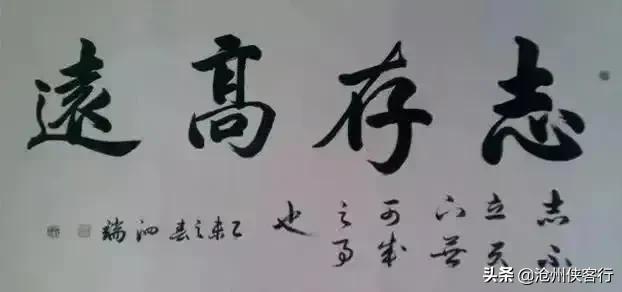 志存高遠
志不
立天
下無
可成
之事
也
乙未之春泗瑞
头条 @沧州侠客行